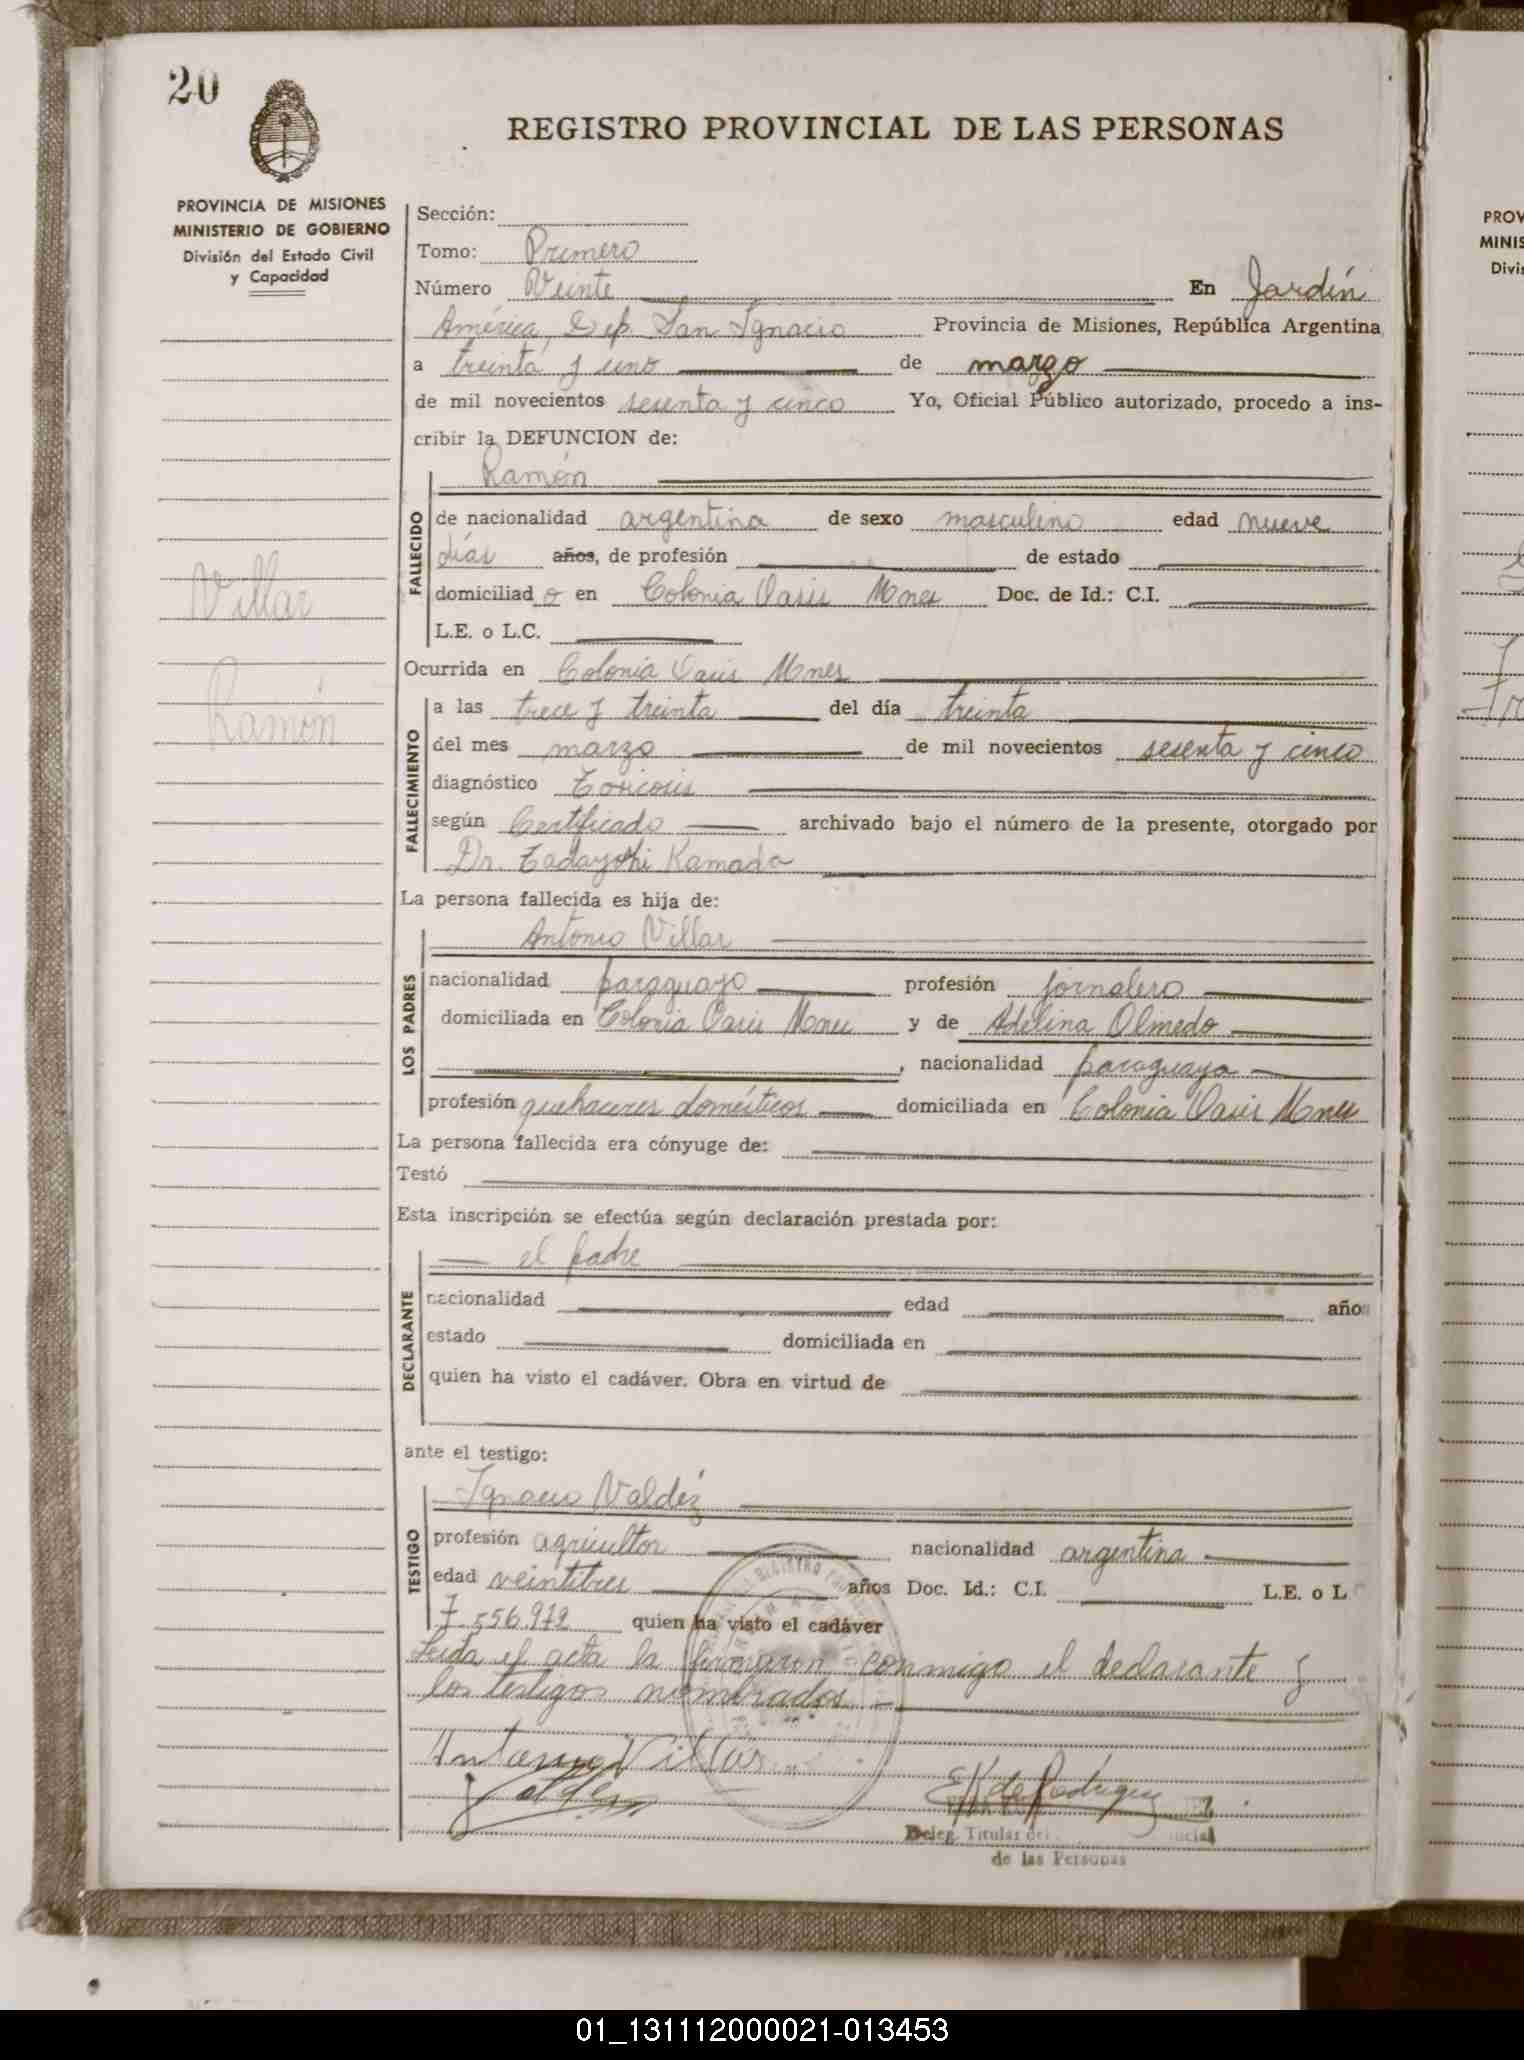 20
REGISTRO PROVINCIAL DE LAS PERSONAS
PROVINCIA DE MISIONES
MINISTERIO DE GOBIERNO
División del Estado Civil
y Capacidad
Sección:
Tomo: Primero
Número Veinte En Jardín
América, Dep. San Ignacio Provincia de Misiones, República Argentina
a treinta y uno de marzo
de mil novecientos sesenta y cinco Yo, Oficial Público autorizado, procedo a ins-
cribir la DEFUNCION de:
Ramón
FALLECIDO
de nacionalidad argentina de sexo masculino edad nueve
días años, de profesión de estado
domiciliad o en Colonia Oasis Mnes Doc. de Id.: C.I.
L.E. o L.C.
Villar
Ramón
Ocurrida en Colonia Oasis Mnes
FALLECIMIENTO
a las trece y treinta del día treinta
del mes marzo de mil novecientos sesenta y cinco
diagnóstico Toxicosis
según Certificado archivado bajo el número de la presente, otorgado por
Dr. Tadayoshi Kamada
La persona fallecida es hija de:
LOS PADRES
Antonio Villar
nacionalidad paraguayo profesión jornalero
domiciliada en Colonia Oasis Mnes y de Adelina Olmedo
, nacionalidad paraguaya
profesión quehaceres domésticos domiciliada en Colonia Oasis Mnes
La persona fallecida era cónyuge de:
Testó
Esta inscripción se efectúa según declaración prestada por:
DECLARANTE
el padre
nacionalidad edad años
estado domiciliada en
quien ha visto el cadáver. Obra en virtud de
ante el testigo:
TESTIGO
Ignacio Valdéz
profesión agricultor nacionalidad argentina
edad veintitres años Doc. Id.: C.I. L.E. o L
7.556.972 quien ha visto el cadáver
Leida el acta la firmaron conmigo el declarante y
los testigos nombrados
Antonio Villar
Valdez
E K de Rodriguez
Deleg. Titular del
de las Personas
PROV
MINIS
Divis
01_131112000021-013453